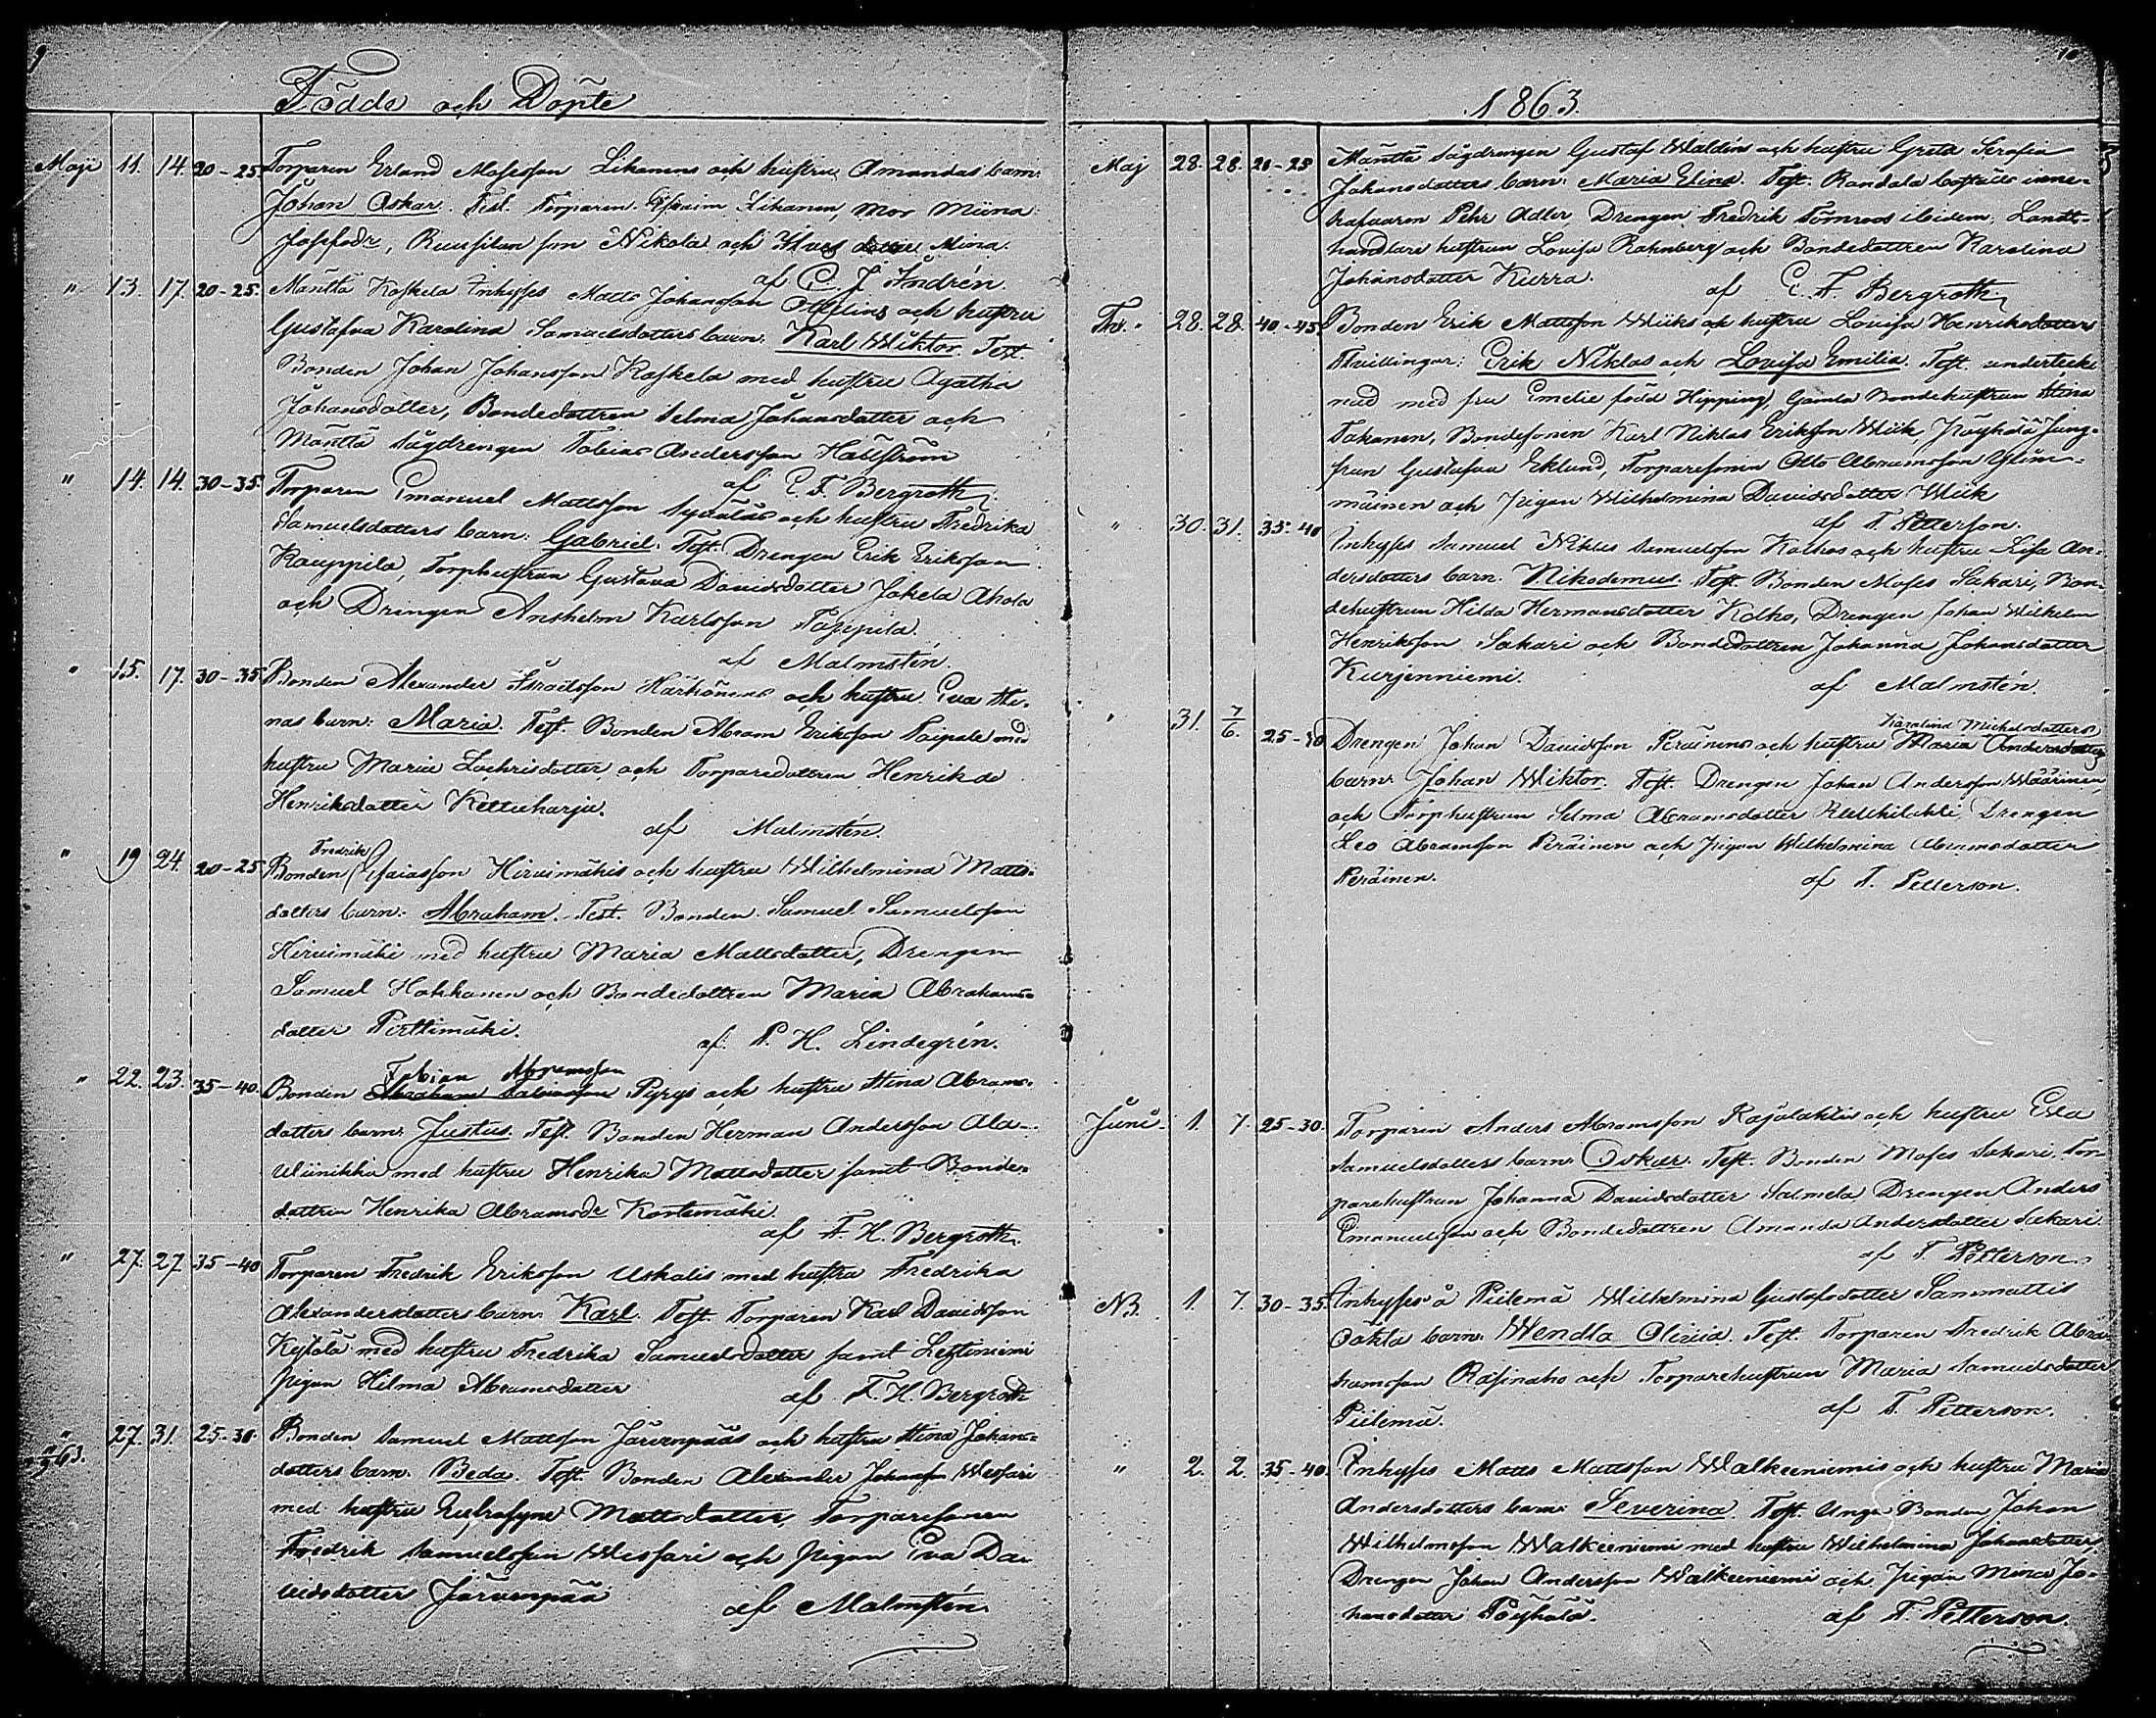 9
Födde och Döpte
Maji 11. 14. 20-25 Torparen Erland Mosesson Likanens och hustru Amandas barn:
Johan Oskar. Test. Torparen Efraim Likanen, Mor Miina
Josefsdr, Ruusilan son Nikola och dotter Mina.
af C. J. Andrén.
" 13. 17. 20-25. Mänttä Koskela Inhyses Matts Johansson och hustru
Gustafva Karolina Samuelsdotters barn: Karl Wiktor. Test.
Bonden Johan Johansson Koskela med hustru Agatha
Johansdotter, Bondedottren Selma Johansdotter och
Mänttä Sågdrengen Tobias Andersson Hällström
af C. F. Bergroth
" 14. 14. 30-35. Torparen Emanuel Mattsson och hustru Fredrika
Samuelsdotters barn: Gabriel. Test. Drengen Erik Eriksson
Kauppila, Torphustrun Gustava Davidsdotter Jokela Ahola
och Drengen Anshelm Karlsson Pappila.
af Malmstén.
" 15. 17. 30-35 Bonden Alexander Israelsson Härkönens och hustru Eva Sti-
nas barn: Maria. Test. Bonden Abram Eriksson Paipale med
hustru Maria Zachrisdotter och Torparedottren Henrika
Henriksdotter Ketturharju.
af Malmstén.
Fredrik
" 19 24. 20-25 Bonden Esaiasson Hirvimäkis och hustru Wilhelmina Matts-
dotters barn: Abraham. Test. Bonden Samuel Samuelsson
Hirvimäki med hustru Maria Mattsdotter, Drengen
Samuel Hakkanen och Bondedottren Maria Abrahams-
dotter Pirttimäki.
af P. H. Lindegrén.
Tobian Abramsson
" 22. 23. 35-40. Bonden Abraham Tobiasson Pyrys och hustru Stina Abrams-
dotters barn: Justus. Test. Bonden Herman Andersson Ala-
Viinikka med hustru Henrika Mattsdotter samt Bonde-
dottren Henrika Abramsdr Kortemäki.
af F. H. Bergroth.
" 27. 27. 35-40 Torparen Fredrik Eriksson Uskalis med hustru Fredrika
Alexandersdotters barn: Karl. Test. Torparen Karl Davidsson
med hustru Fredrika Samuelsdotter samt Lestiniemi
Pigan Hilma Abramsdotter
af F. H. Bergroth
" 27. 31. 25-30. Bonden Samuel Mattsson Järvenpääs och hustru Stina Johans-
dotters barn: Beda. Test. Bonden Alexander Johansson Wessari
med hustru Eufrosyne Mattsdotter, Torparesonen
Fredrik Samuelsson Wessari och Pigan Eva Da-
vidsdotter Järvenpää
af Malmstén.
10
1863.
Maj 28. 28. 20-25 Mänttä Sågdrengen Gustaf Waldéns och hustru Greta Serafia
Johansdotters barn: Maria Elina. Test. Randala boställs inne-
hafvaren Pehr Adler, Drengen Fredrik Törnroos ibidem, Landt-
handlare hustrun Lovisa Rahnberg och Bondedottren Karolina
Johansdotter Kurra.
af C. F. Bergroth.
Tv. " 28. 28. 40-45. Bonden Erik Mattsson Wiiks och hustru Lovisa Henriksdotters
Tvillingar: Erik Niklas och Lovisa Emilia. Test. underteck-
nad med fru Emelie född Hipping, Gamla Bondehustrun Stina
Takanen, Bondesonen Karl Niklas Eriksson Wiik, Pöyhölä Jung-
frun Gustafva Eklund, Torparesonen Otto Abramsson
mäinen och Pigan Wilhelmina Davidsdotter Wiik
af T. Petterson.
" 30. 31. 35-40 Inhyses Samuel Niklas Samuelsson Kolhos och hustru Lisa An-
dersdotters barn: Nikodemus. Test. Bonden Moses Sakari, Bon-
dehustrun Hilda Hermansdotter Kolho, Drengen Johan Wilhelm
Henriksson Sakari och Bondedottren Johanna Johansdotter
Kurjenniemi.
af Malmstén.
Karolina Michelsdotters
" 31. 7/6. 25-30 Drengen Johan Davidsson Peräinens och hustru Maria Andersdotters
barn: Johan Wiktor. Test. Drengen Johan Andersson Wäärinen
och Torphustrun Selma Abramsdotter Drengen
Leo Abramsson Peräinen och Pigan Wilhelmina Abramsdotter
Peräinen.
af T. Petterson.
Juni 1. 7. 25-30. Torparen Anders Abramsson Rajalahtis och hustru Eva
Samuelsdotters barn: Oskar. Test. Bonden Moses Sakari, Tor-
parehustrun Johanna Davidsdotter Salmela Drengen Anders
Emanuelsson och Bondedottren Amanda Andersdotter Sakari.
af T. Petterson.
NB. 1. 7. 30-35. Inhyses å Piilemä Wilhelmina Gustafsdotter Sammattis
Oäkta barn: Wendla Olivia. Test. Torparen Fredrik Abra-
hamsson Rasinaho och Torparehustrun Maria Samuelsdotter
Piilemä.
af T. Petterson.
" 2. 2. 35-40. Inhyses Matts Mattsson Walkeeniemis och hustru Maria
Andersdotters barn: Severina. Test. Unga Bonden Johan
Wilhelmsson Walkeeniemi med hustru Wilhelmina Johansdotter,
Drengen Johan Andersson Walkeeniemi och Pigan Mina Jo-
hansdotter Pöyhölä.
af T. Petterson.